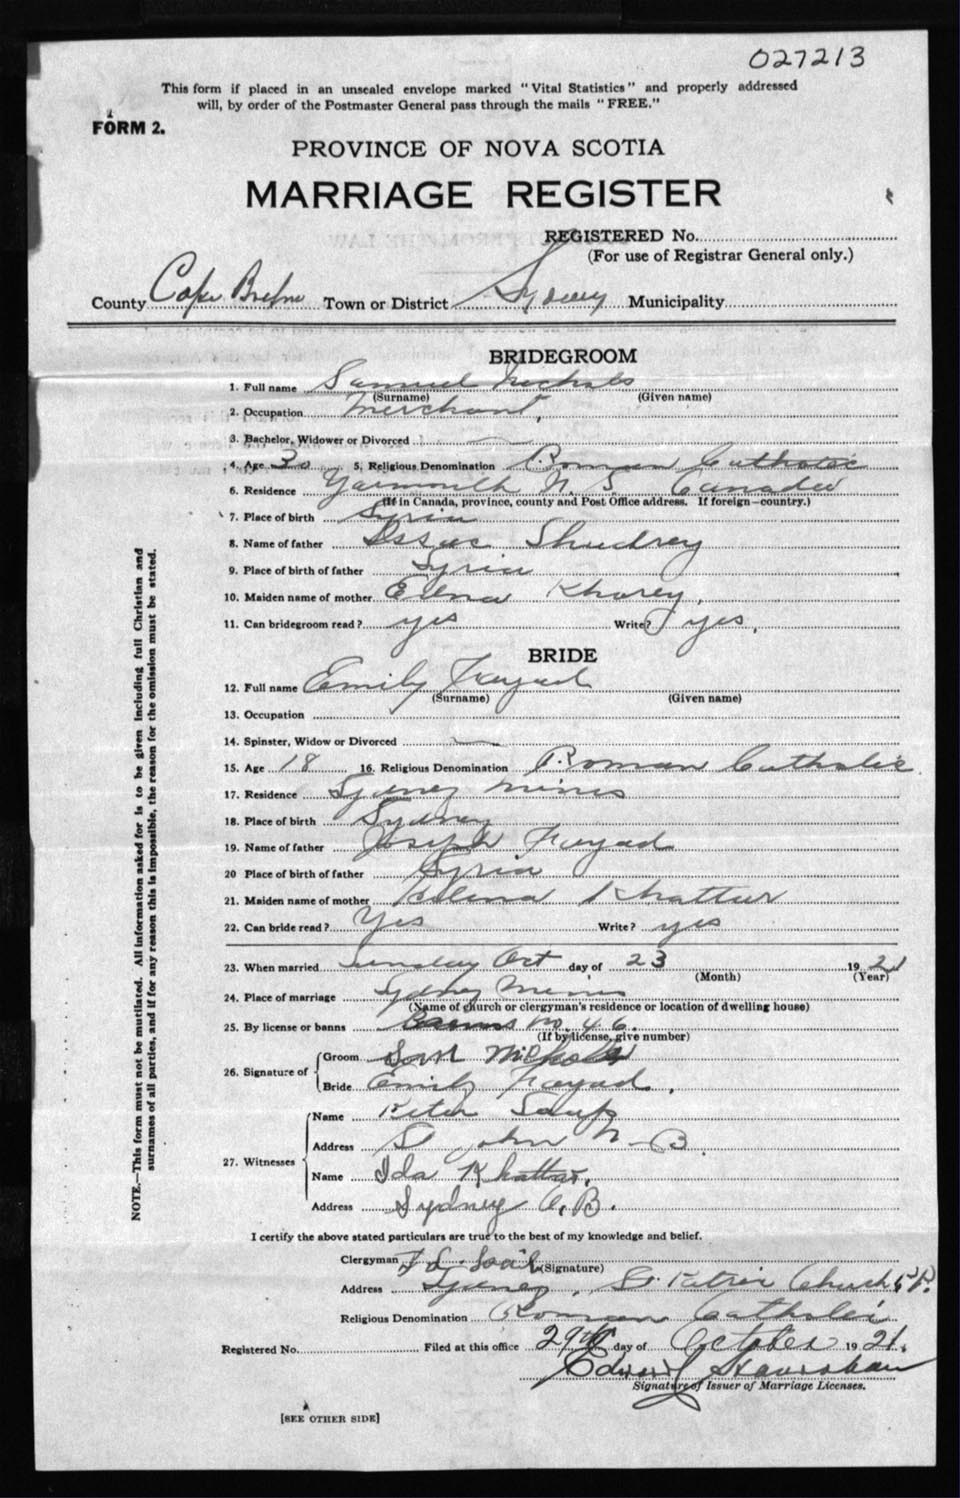 027213
This form if placed in an unsealed envelope marked "Vital Statistics" and properly addressed
will, by order of the Postmaster General pass through the mails "FREE."
FORM 2.
PROVINCE OF NOVA SCOTIA
MARRIAGE REGISTER
REGISTERED No.
(For use of Registrar General only.)
County Cape Breton Town or District Sydney Municipality
BRIDEGROOM
1. Full name Samuel Nichols
(Surname) (Given name)
2. Occupation Merchant,
3. Bachelor, Widower or Divorced
4. Age 30 5. Religious Denomination Roman Catholic
6. Residence Yarmouth N. S. Canada
(If in Canada, province, county and Post Office address. If foreign—country.)
7. Place of birth Syria
8. Name of father Issac Shudrey
9. Place of birth of father Syria
10. Maiden name of mother Elena Khorey,
11. Can bridegroom read? yes Write? yes,
BRIDE
12. Full name Emily Fayad
(Surname) (Given name)
13. Occupation
14. Spinster, Widow or Divorced
15. Age 18 16. Religious Denomination Roman Catholic
17. Residence Sydney Mines
18. Place of birth Sydney
19. Name of father Joseph Fayad
20 Place of birth of father Syria
21. Maiden name of mother Khattar
22. Can bride read? Yes Write? yes
23. When married Sunday Oct day of 23 1921
(Month) (Year)
24. Place of marriage Sydney Mines
(Name of church or clergyman's residence or location of dwelling house)
25. By license or banns Banns no. 46.
(If by license, give number)
26. Signature of
Groom Sam Nichols
Bride Emily Fayad.
27. Witnesses
Name Peter
Address St John N-B.
Name Ida Khattar,
Address Sydney C.B.
I certify the above stated particulars are true to the best of my knowledge and belief.
Clergyman
(Signature)
Address Sydney, Church
Religious Denomination Roman Catholic
Registered No. Filed at this office 29th day of October 1921.
Edward
Signature of Issuer of Marriage Licenses.
[SEE OTHER SIDE]
NOTE.—This form must not be mutilated. All information asked for is to be given including full Christian and
surnames of all parties, and if for any reason this is impossible, the reason for the omission must be stated.